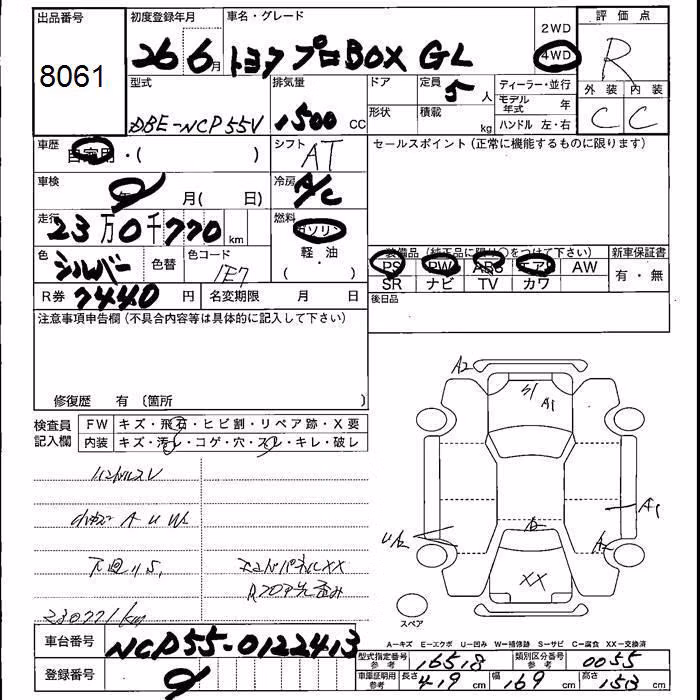 出品番号 8061
初度登録年月 26 6月
車名・グレード トヨタ プロBOX GL
2WD
4WD
評価点 R
型式 DBE-NCP55V
排気量 1500 CC
ドア 定員 5人
形状 積載 kg
ディーラー・並行
モデル年式 年
ハンドル 左・右
外装 内装
C C
車歴 自家用・( )
シフト AT
セールスポイント(正常に機能するものに限ります)
車検 年 月( 日)
冷房 A/C
走行 23万0千770 km
燃料 ガソリン
軽・油
( )
色 シルバー 色替 色コード 1E7
装備品(純正品に限り○をつけて下さい) 新車保証書
PS PW ABS エアB AW 有・無
SR ナビ TV カワ
R券 7440 円 名変期限 月 日
後日品
注意事項申告欄(不具合内容等は具体的に記入して下さい)
修復歴 有〔箇所 〕
検査員記入欄 FW キズ・飛石・ヒビ割・リペア跡・X要
内装 キズ・汚レ・コゲ・穴・スレ・キレ・破レ
ハンドルスレ
A U W
下廻りS,
エンドパネルXX
Rフロア先歪み
230771km
A2
S1 A1
A1
UA2
A2
XX
スペア
A-キズ E-エクボ U-凹み W-補修跡 S-サビ C-腐食 XX-交換済
車台番号 NCP55-0122413
登録番号
型式指定番号 参考 16518 類別区分番号 参考 0055
車庫証明用 参考 長さ 419 cm 幅 169 cm 高さ 153 cm